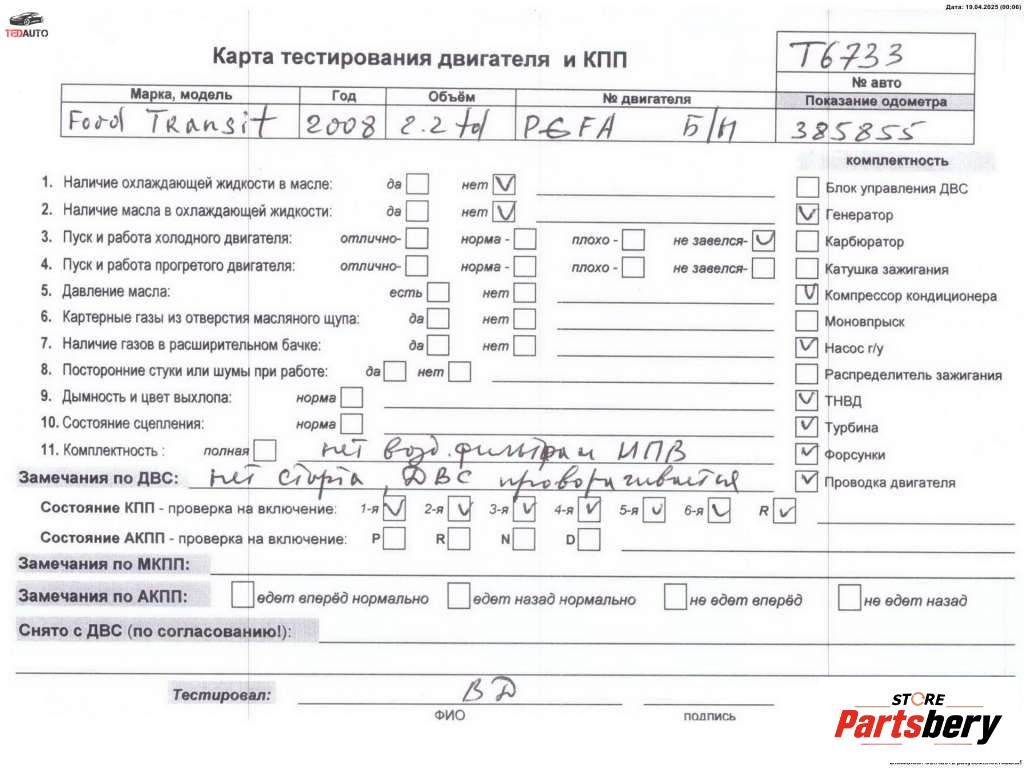 Дата: 19.04.2025 (00:06)
TEDAUTO
Карта тестирования двигателя и КПП
T6733
№ авто
Марка, модель Год Объём № двигателя Показание одометра
Ford Transit 2008 2.2 td PGFA Б/Н 385855
комплектность
1. Наличие охлаждающей жидкости в масле: да нет V Блок управления ДВС
2. Наличие масла в охлаждающей жидкости: да нет V V Генератор
3. Пуск и работа холодного двигателя: отлично- норма - плохо - не завелся- V Карбюратор
4. Пуск и работа прогретого двигателя: отлично- норма - плохо - не завелся- Катушка зажигания
5. Давление масла: есть нет V Компрессор кондиционера
6. Картерные газы из отверстия масляного щупа: да нет Моновпрыск
7. Наличие газов в расширительном бачке: да нет V Насос г/у
8. Посторонние стуки или шумы при работе: да нет Распределитель зажигания
9. Дымность и цвет выхлопа: норма V ТНВД
10. Состояние сцепления: норма V Турбина
11. Комплектность : полная нет возд. фильтра и ИПВ V Форсунки
Замечания по ДВС: нет старта, ДВС проворачивается V Проводка двигателя
Состояние КПП - проверка на включение: 1-я V 2-я V 3-я V 4-я V 5-я V 6-я V R V
Состояние АКПП - проверка на включение: P R N D
Замечания по МКПП:
Замечания по АКПП: едет вперёд нормально едет назад нормально не едет вперёд не едет назад
Снято с ДВС (по согласованию!):
Тестировал: ВД
ФИО подпись
STORE
Partsbery